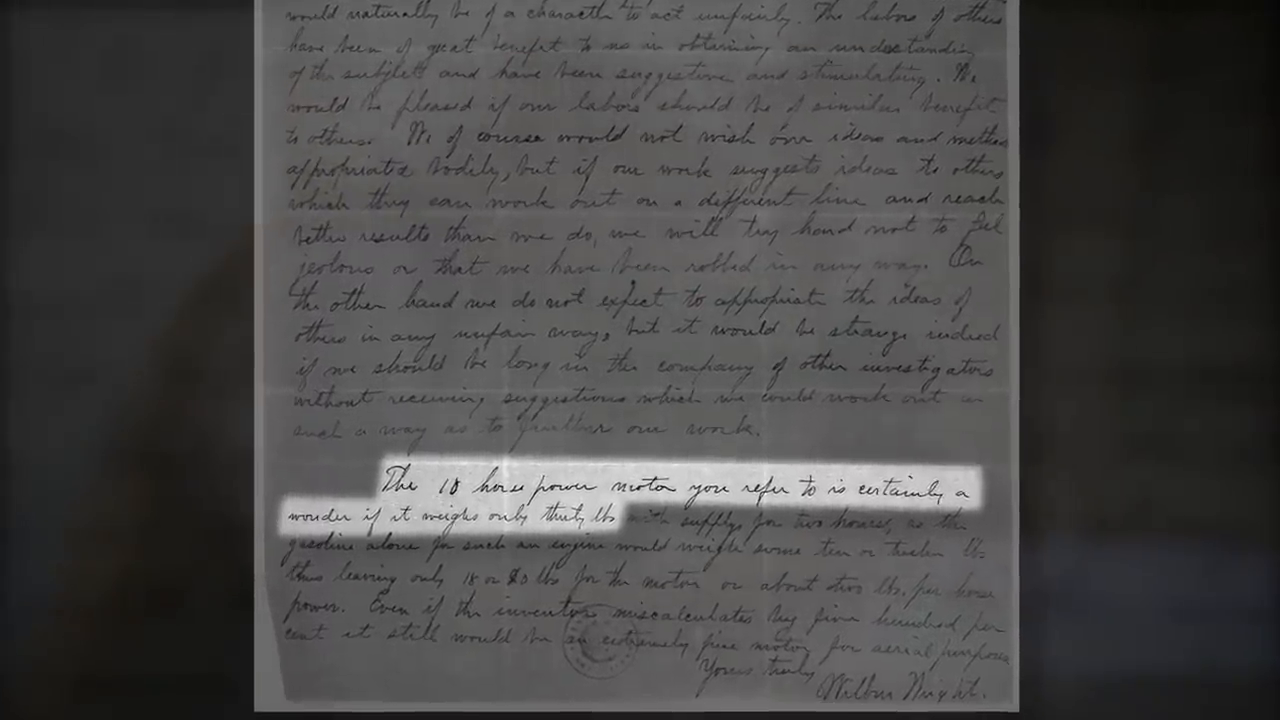 would naturally be of a character to act unfairly. The labors of others
have been of great benefit to us in obtaining an understanding
of the subject and have been suggestive and stimulating. We
would be pleased if our labors should be of similar benefit
to others. We of course would not wish our ideas and methods
appropriated bodily, but if our work suggests ideas to others
which they can work out on a different line and reach
better results than we do, we will try hard not to feel
jealous or that we have been robbed in any way. On
the other hand we do not expect to appropriate the ideas of
others in any unfair way, but it would be strange indeed
if we should be long in the company of other investigators
without receiving suggestions which we could work out in
such a way as to further our work.
The 10 horse power motor you refer to is certainly a
wonder if it weighs only thirty lbs with supply for two hours, as the
gasoline alone for such an engine would weigh some ten or twelve lbs
thus leaving only 18 or 20 lbs for the motor or about two lbs. per horse
power. Even if the inventor miscalculates by five hundred per
cent it still would be an extremely fine motor for aerial purposes
Yours truly
Wilbur Wright.